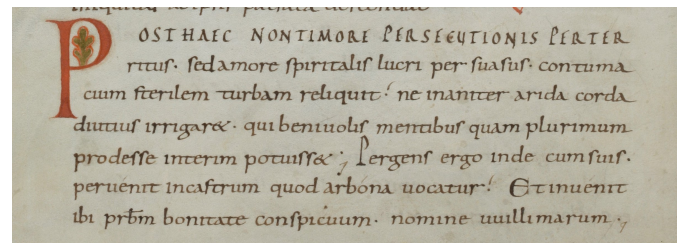 POST HAEC NON TIMORE PERSECUTIONIS PERTER
ritus. sed amore spiritalis lucri per suasus. contuma
cium sterilem turbam reliquit. ne inaniter arida corda
diutius irrigar&. qui beniuolis mentibus quam plurimum
prodesse interim potuiss&; Pergens ergo inde cum suis.
peruenit in castrum quod arbona uocatur. Et inuenit
ibi prbm bonitate conspicuum. nomine uuillimarum.,